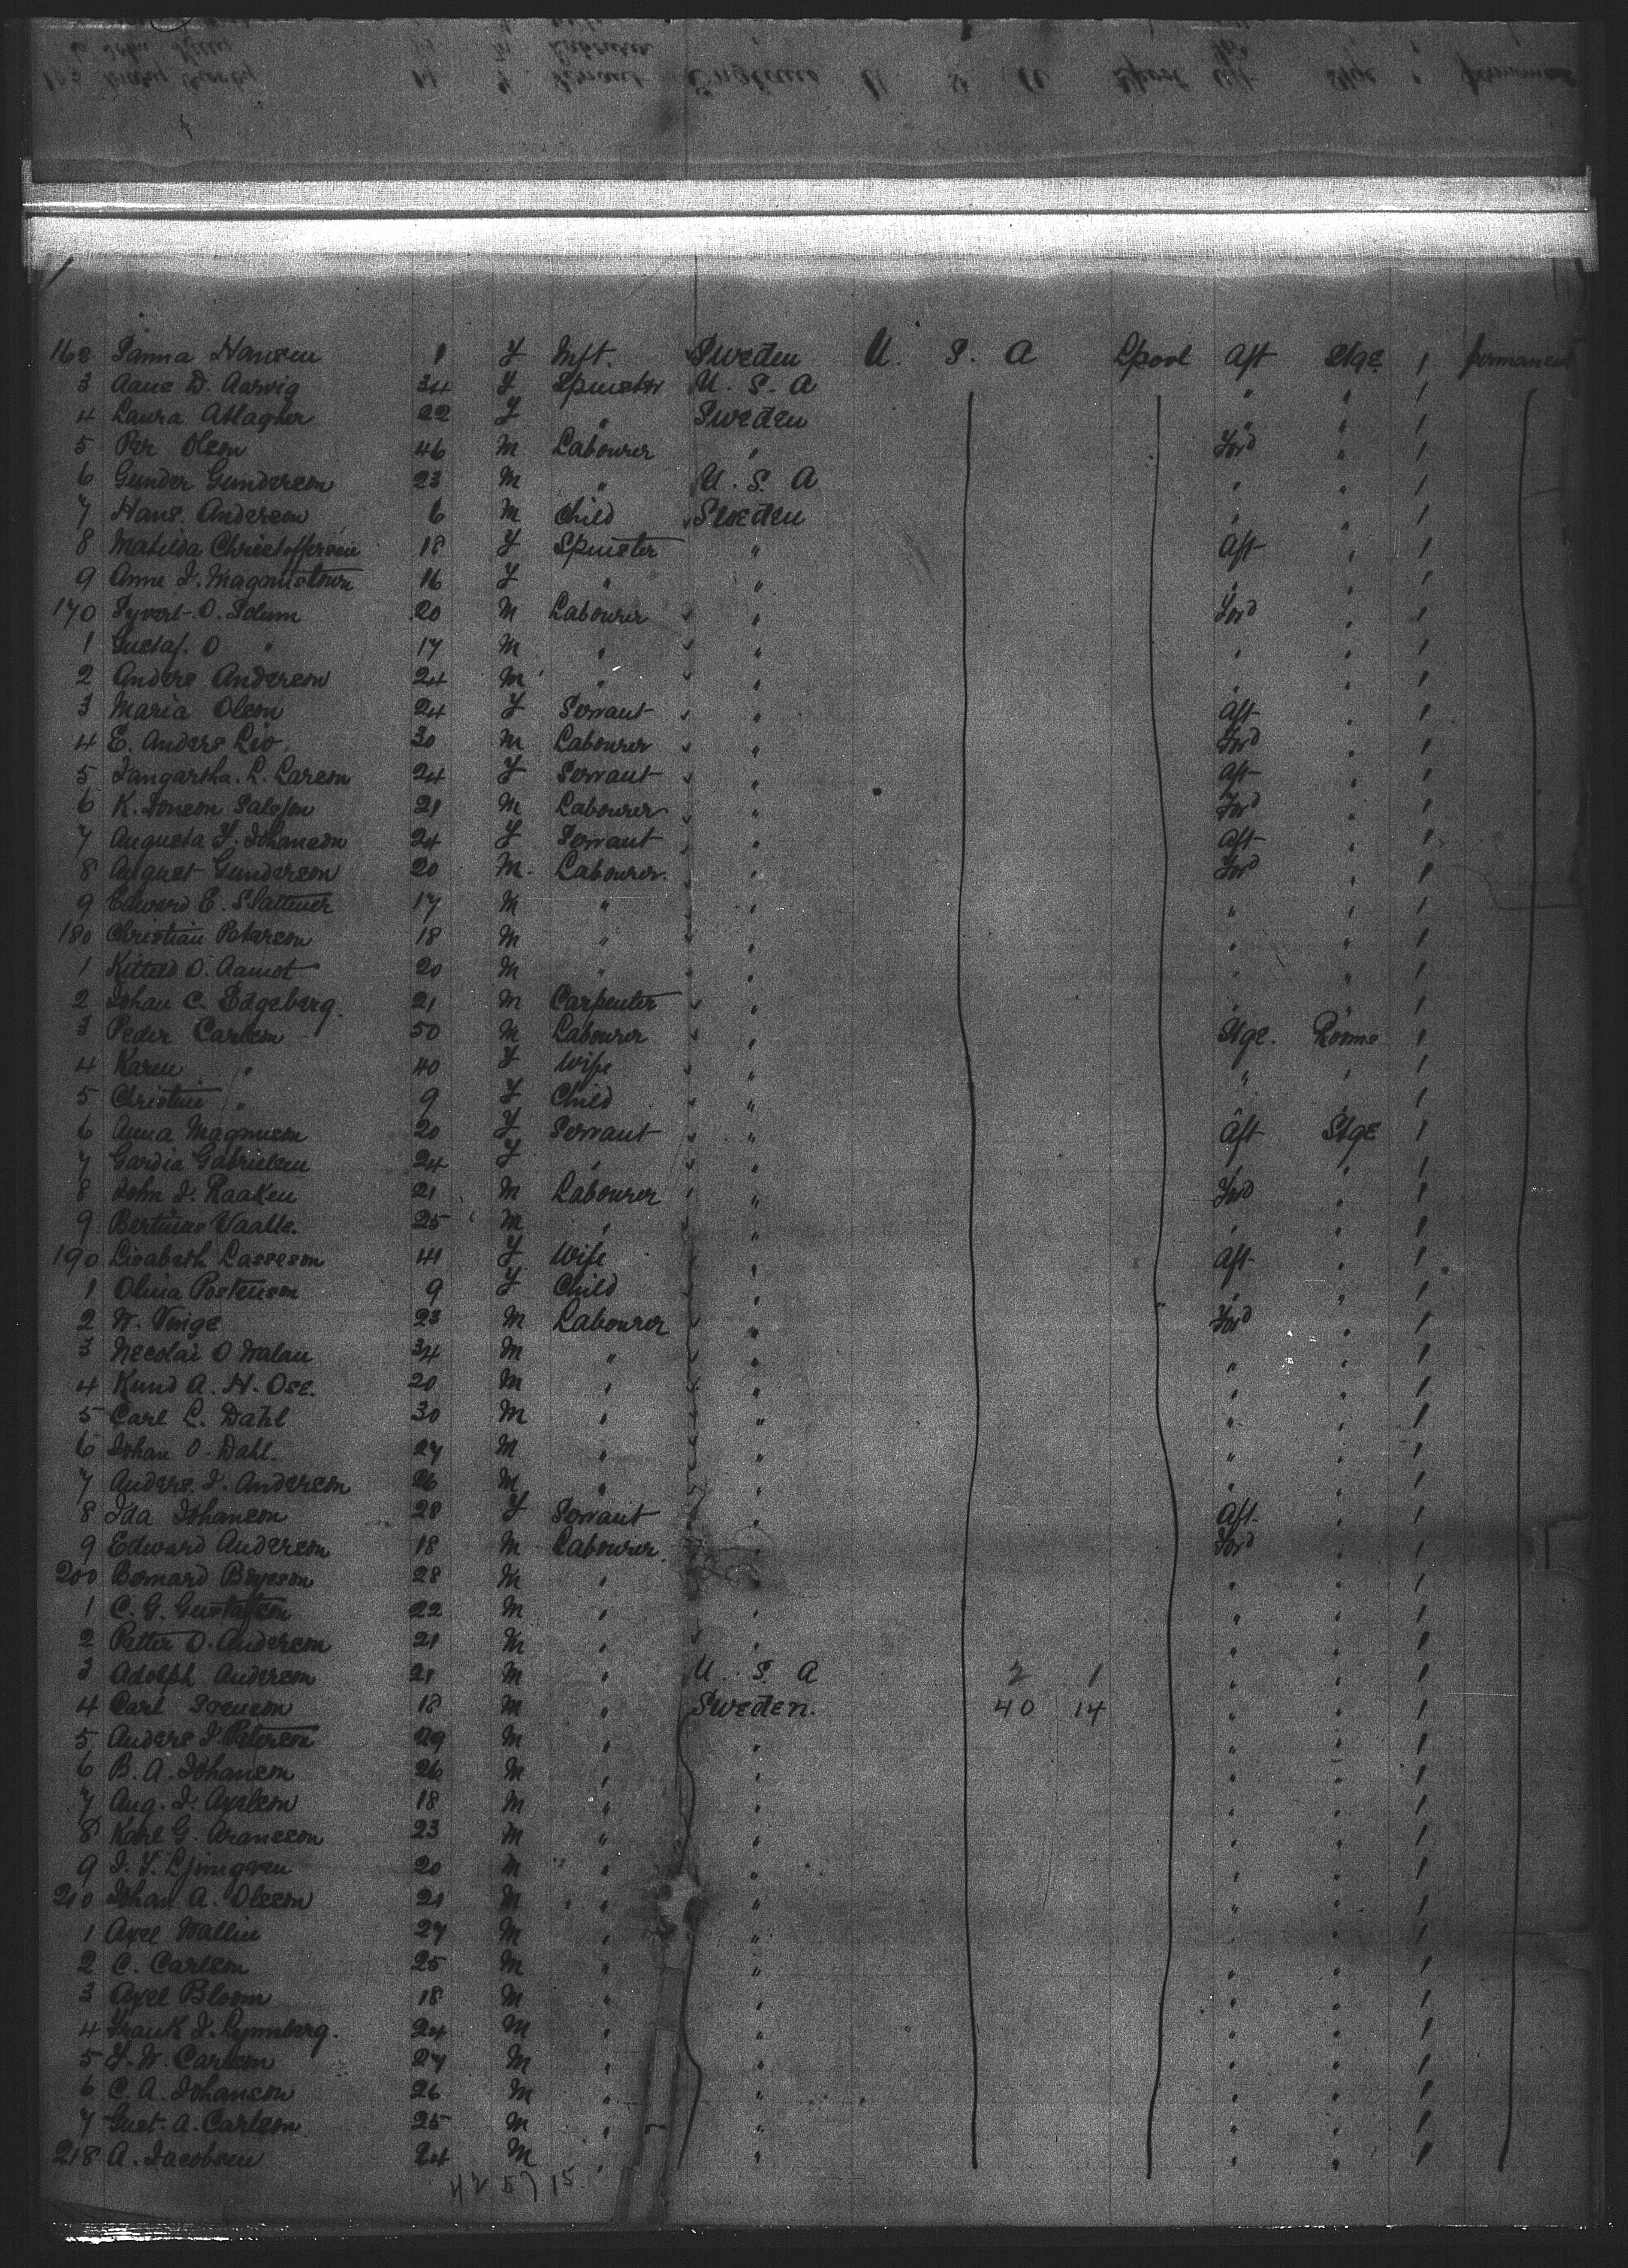 162 Hansen 1 F Inft. Sweden U. S. A Lpool Aft Stge 1 permanent
3 Aane D. Aarvig 34 F Spinster U. S. A " " 1
4 Laura 22 F " Sweden " " 1
5 Per Olson 46 M Labourer " Ford " 1
6 Gunder Gunderson 23 M " U. S. A " " 1
7 Hans. Anderson 6 M Child Sweden " " 1
8 Matilda Christofferson 18 F Spinster " Aft " 1
9 Anne J. 16 F " " " " 1
170 Syvert O. Solum 20 M Labourer " Ford " 1
1 Gustaf. O " 17 M " " " " 1
2 Anders Anderson 24 M " " " " 1
3 Maria Olson 24 F Servant " Aft " 1
4 E. Anders Leo 30 M Labourer " Ford " 1
5 L. Larson 24 F Servant " Aft " 1
6 K. Jonson 21 M Labourer " Ford " 1
7 Augusta F. Johanson 24 F Servant " Aft " 1
8 August Gunderson 20 M. Labourer. " Ford " 1
9 Edward E. 17 M " " " " 1
180 Christian Peterson 18 M " " " " 1
1 O. Aamot 20 M " " " " 1
2 Johan C. Edgeberg. 21 M Carpenter " " " 1
3 Peder Carlson 50 M Labourer " Stge. Rooms 1
4 Karen " 40 F Wife " " " 1
5 Christine " 9 F Child " " " 1
6 Anna Magnuson 20 F Servant " Aft Stge 1
7 Gardia Gabrielsen 24 F " " " " 1
8 John J. Raaken 21 M Labourer " Ford " 1
9 Vaalle. 25 M " " " " 1
190 Lisabeth Lasseson 41 F Wife " Aft " 1
1 Olina 9 F Child " " " 1
2 W. Vinge 23 M Labourer " Ford " 1
3 Necolai O 34 M " " " " 1
4 Knud A. N. Ose. 20 M " " " " 1
5 Carl L. Dahl 30 M " " " " 1
6 Johan O. Dahl. 27 M " " " " 1
7 Anders. J. Anderson 26 M " " " " 1
8 Ida Johanson 28 F Servant " Aft " 1
9 Edward Anderson 18 M Labourer. " Ford " 1
200 Bernard Boyeson 28 M " " " " 1
1 C. G. Gustafson 22 M " " " " 1
2 Petter O. Anderson 21 M " " " " 1
3 Adolph Anderson 21 M " U. S. A 2 1 " " 1
4 Carl Svenson 18 M " Sweden. 40 14 " " 1
5 Anders J Peterson 29 M " " " " 1
6 B. A. Johanson 26 M " " " " 1
7 Aug. J. Axelson 18 M " " " " 1
8 Karl G. Aranson 23 M " " " " 1
9 J. F. Ljungren 20 M " " " " 1
210 Johan A. Olsson 21 M " " " " 1
1 Axel Wallin 27 M " " " " 1
2 C. Carlson 25 M " " " " 1
3 Axel Bloom 18 M " " " " 1
4 Frank J. 24 M " " " " 1
5 F. W. Carlson 27 M " " " " 1
6 C. A. Johanson 26 M " " " " 1
7 Gust. A. Carlson 25 M " " " " 1
218 A. Jacobsen 24 M " " " " 1
42 57 15